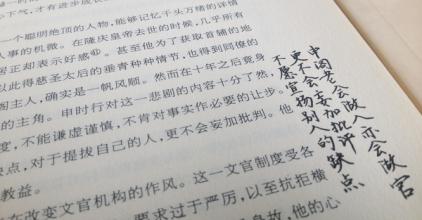 下气,才有进步成长
一个聪明绝顶的人物,能够记忆千头万绪的详情
人事的机微。在隆庆皇帝去世的时候,几乎所有
居正却表示好感㊶。甚至他为了获取首辅的地
以此得慈圣太后的垂青种种情节,也得到同僚的
阁主人,确实是一帆风顺。然而在十年之后竟身
的主角。申时行对这一悲剧的内容十分了然,
度,不能谦虚谨慎,不肯对事实作必要的让步。他
缺点,对于提拔自己的人,更不会妄加批判。他
教益。
在改变文官机构的作风。这一文官制度受各
要求过于严厉,以至抗拒横
他的心
申阁老会做人亦会做官
更不会妄加批评
不愿宣扬别人的缺点